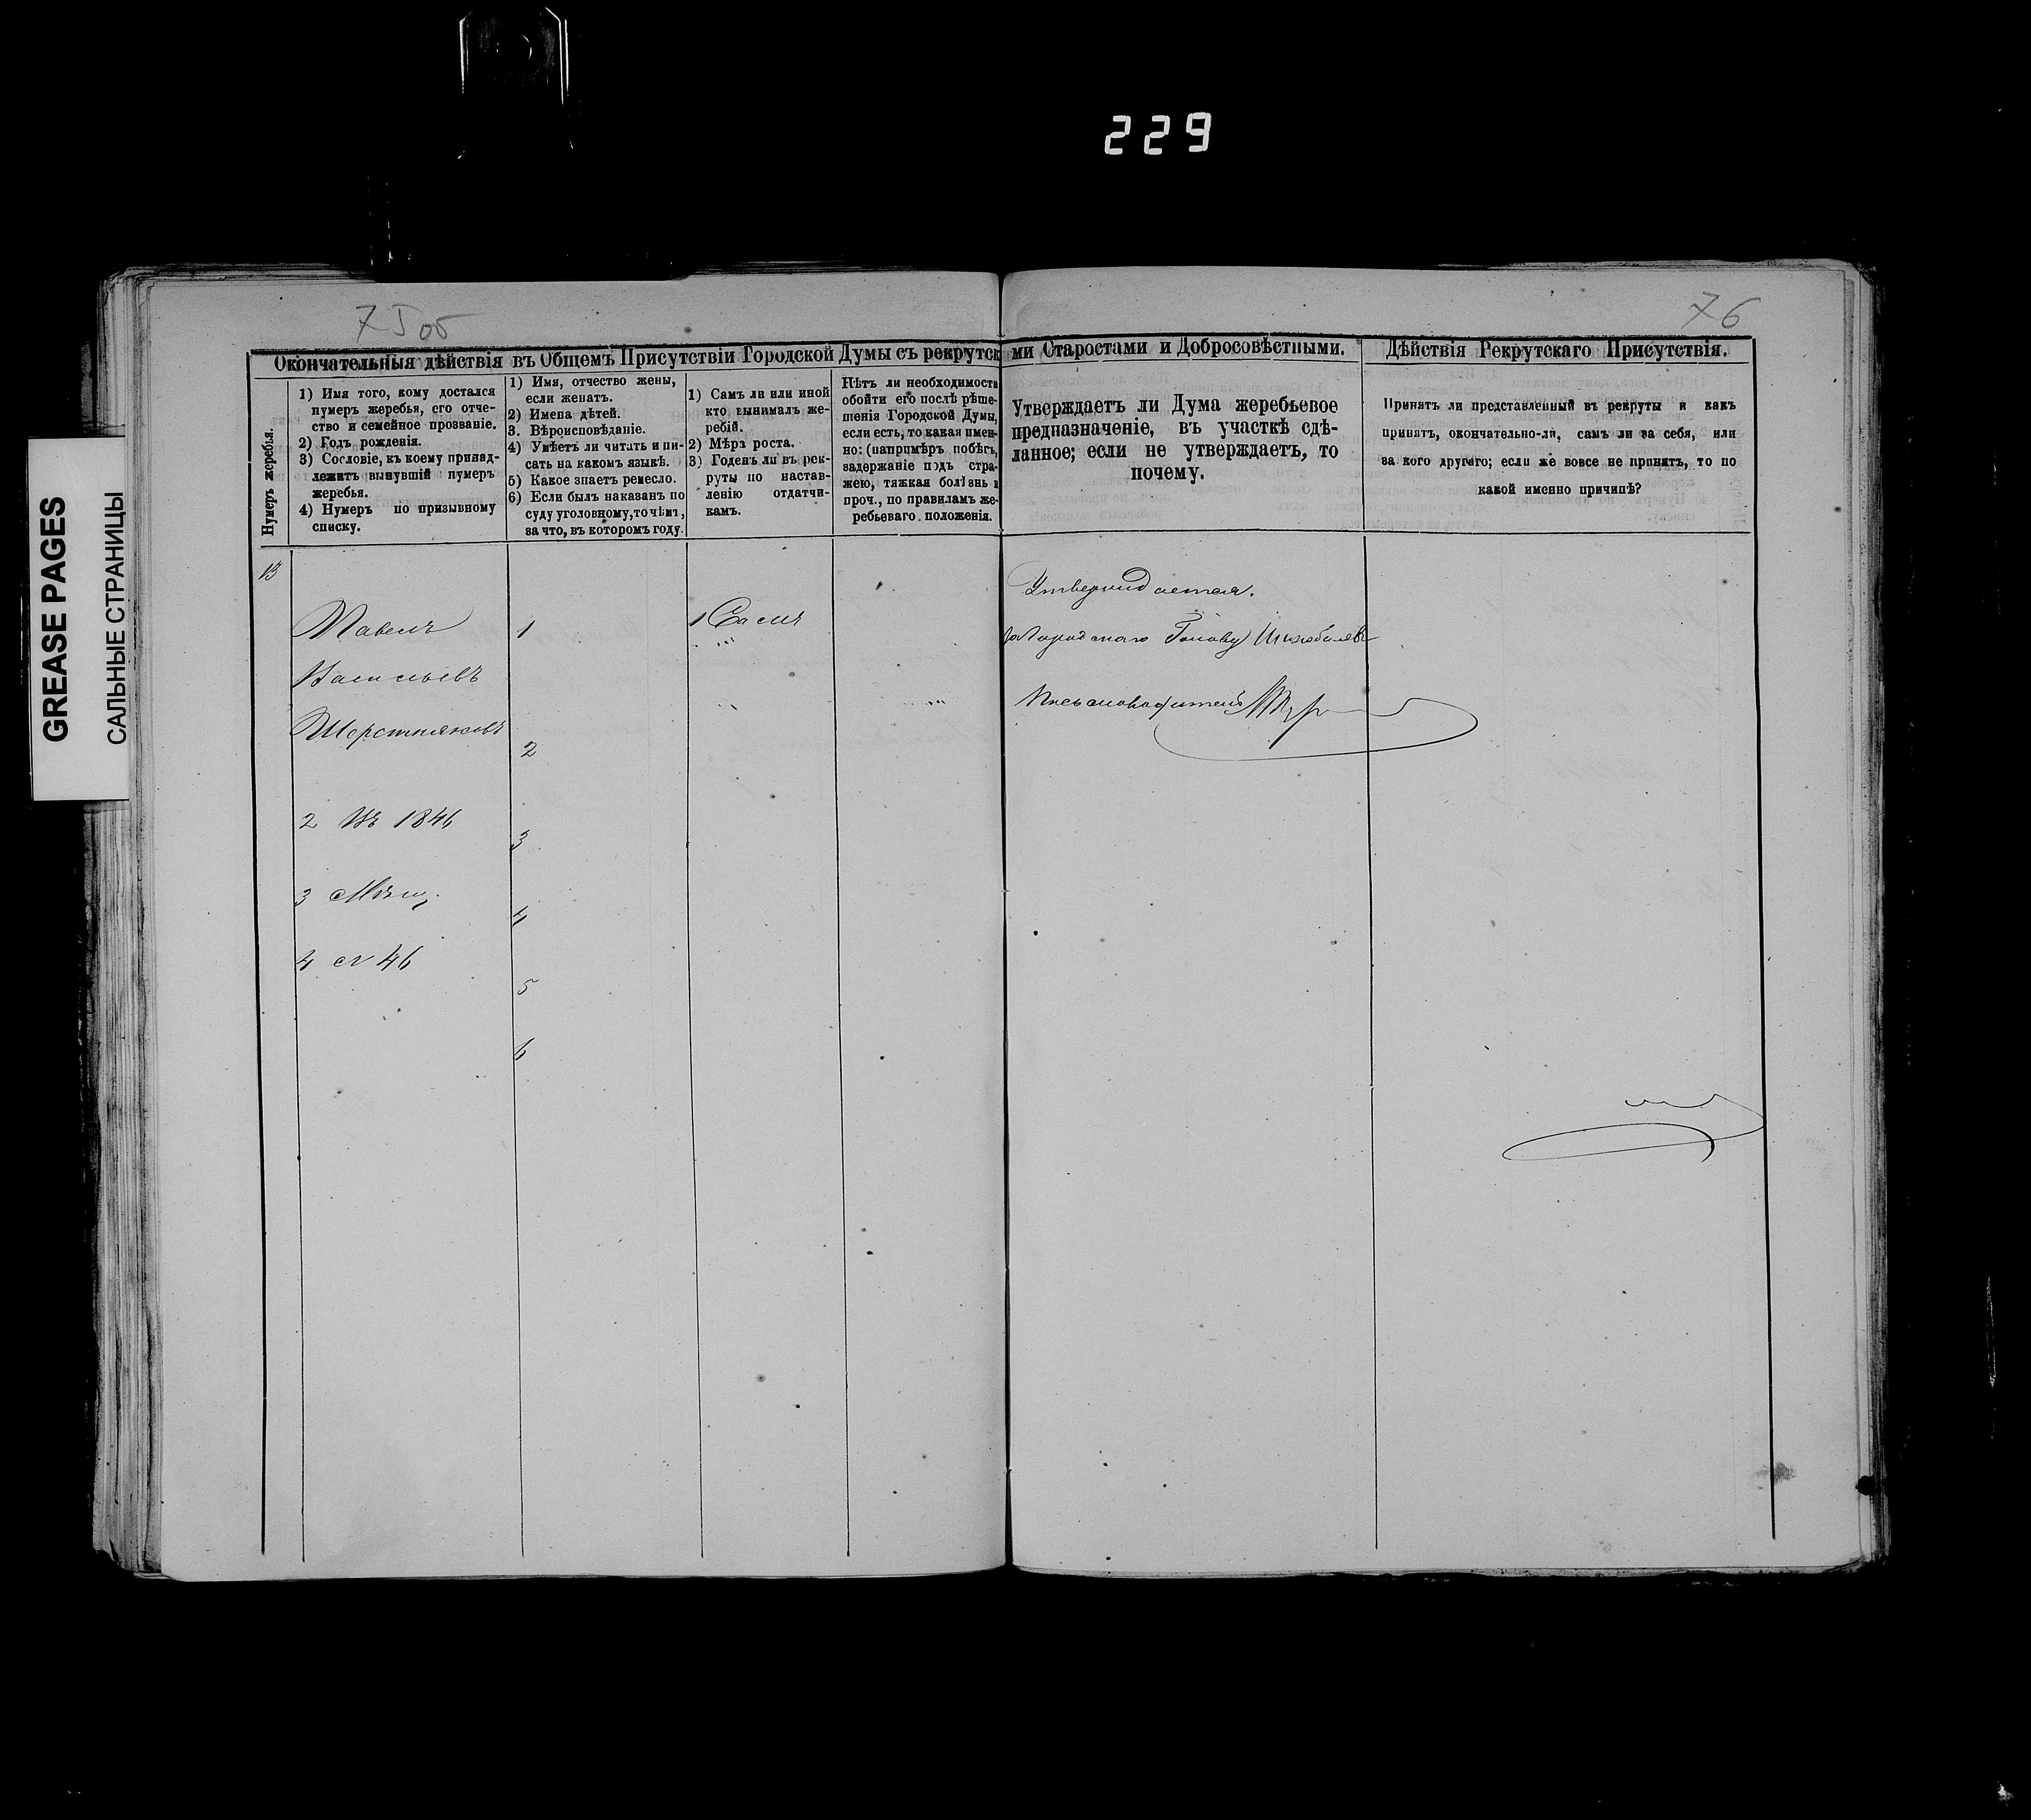 229
GREASE PAGES
САЛЬНЫЕ СТРАНИЦЫ
75 об
76
Окончательныя дѣйствія въ Общемъ Присутствіи Городской Думы съ рекрутск ми Старостами и Добросовѣстными.
Дѣйствія Рекрутскаго Присутствія.
Нумеръ жеребья.
1) Имя того, кому достался
нумеръ жеребья, его отче-
ство и семейное прозваніе.
2) Годъ рожденія.
3) Сословіе, къ коему принад-
лежитъ вынувшій нумеръ
жеребья.
4) Нумеръ по призывному
списку.
1) Имя, отчество жены,
если женатъ.
2) Имена дѣтей.
3. Вѣроисповѣданіе.
4) Умѣетъ ли читать и пи-
сать на какомъ языкѣ.
5) Какое знаетъ ремесло.
6) Если былъ наказанъ по
суду уголовному, то чѣмъ,
за что, въ которомъ году.
1) Самъ ли или иной
кто вынималъ же-
ребій.
2) Мѣра роста.
3) Годенъ ли въ рек-
руты по настав-
ленію отдатчи-
камъ.
Нѣтъ ли необходимости
обойти его послѣ рѣше-
шенія Городской Думы,
если есть, то какая имен-
но: (напримѣръ побѣгъ,
задержаніе подъ стра-
жею, тяжкая болѣзнь и
проч., по правиламъ же-
ребьеваго положенія.
Утверждаетъ ли Дума жеребьевое
предназначеніе, въ участкѣ сдѣ-
ланное; если не утверждаетъ, то
почему.
Принятъ ли представленный въ рекруты и какъ
принятъ, окончательно-ли, самъ ли за себя, или
за кого другаго; если же вовсе не принятъ, то по
какой именно причинѣ?
13
Павелъ
Васильевъ
Шерстняковъ
2 Въ 1846
3 Мѣщ.
4 № 46
1
2
3
4
5
6
1 Самъ
Утверждается.
За Городскаго Голову
Письмоводитель